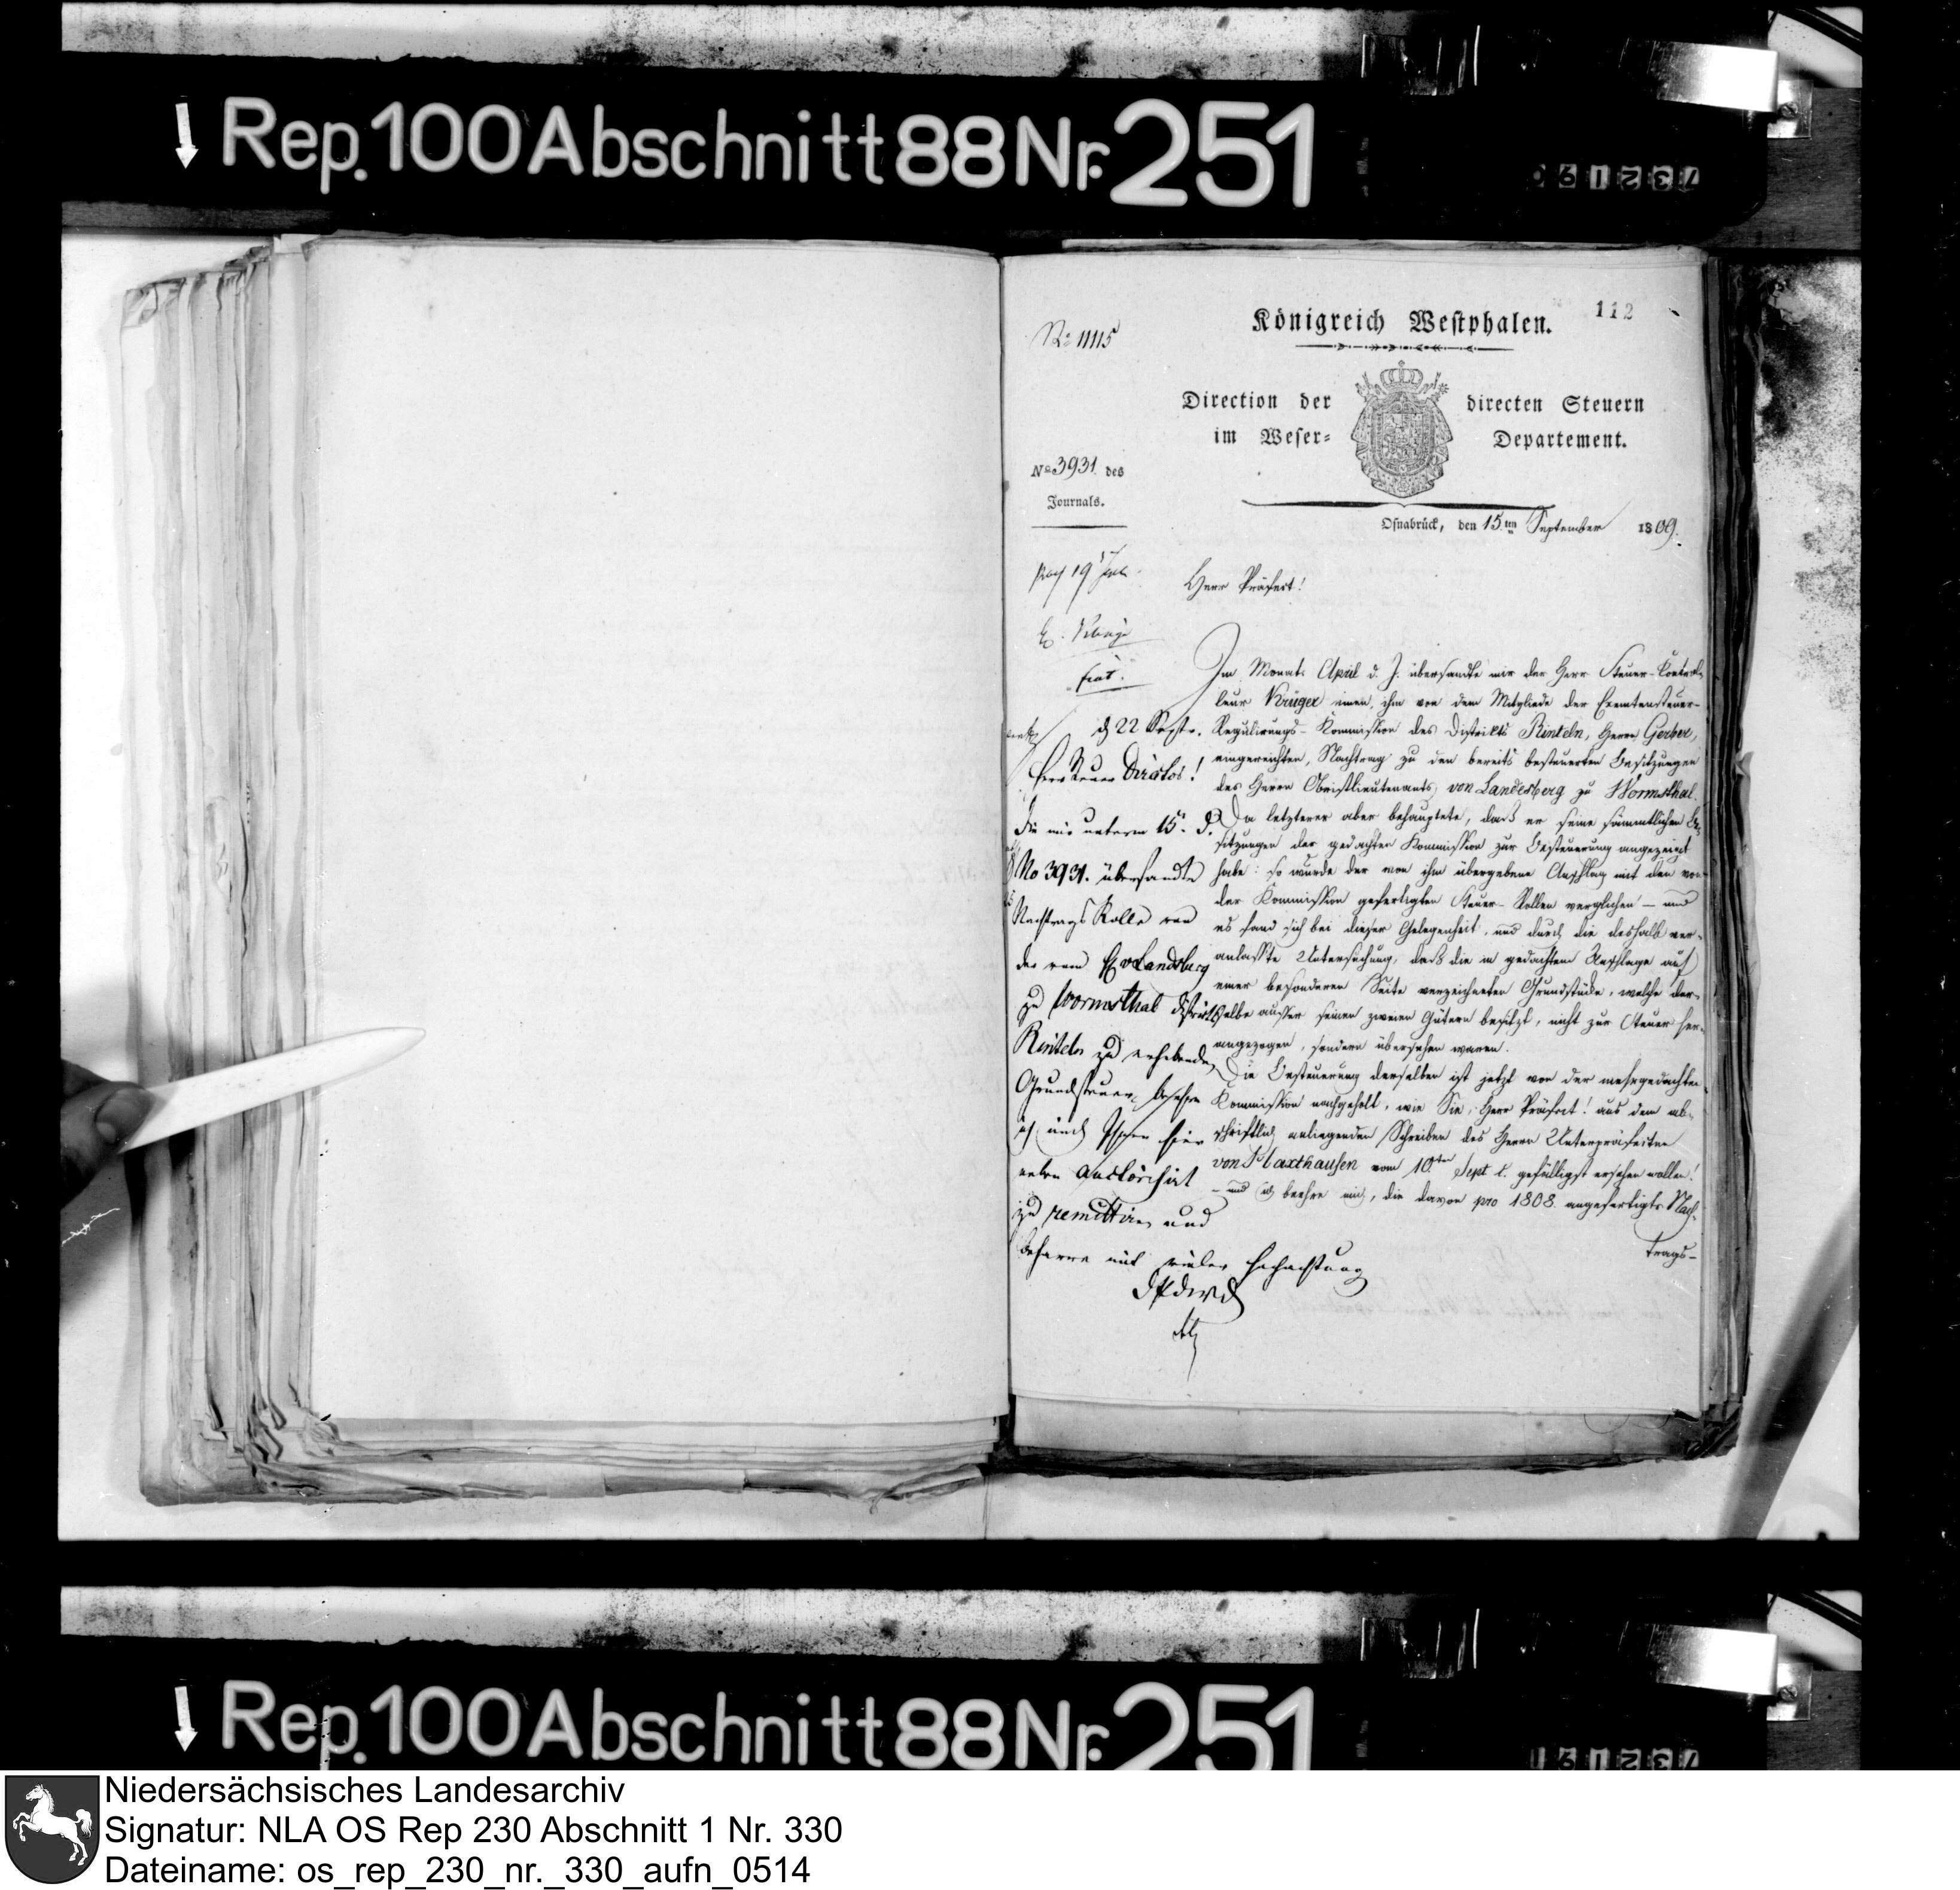 Rep. 100 Abschnitt 88 Nr. 251
112
Königreich Westphalen.
No 11115
Direction der directen Steuern
im Weser- Departement.
No 3931 des
Journals.
Osnabrück, den 15ten September 1809.
Herr Präfect!
fiat.
Im Monate April d. J. übersandte mir der Herr Steuer-Control-
leur Krüger einen, ihm von dem Mitgliede der Exemtensteuer-
Regulirungs-Kommission des Distrikts Rinteln, Herrn Gerber,
eingereichten, Nachtrag zu den bereits besteuerten Besitzungen
des Herrn Obristlieutenants von Landesberg zu Wormsthal.
Da letzterer aber behauptete, daß er seine sämmtlichen Be-
sitzungen der gedachten Kommission zur Besteuerung angezeigt
habe: so wurde der von ihm übergebene Anschlag mit den von
der Kommission gefertigten Steuer-Rollen verglichen — und
es fand sich bei dieser Gelegenheit, und durch die deshalb ver-
anlaßte Untersuchung, daß die in gedachtem Anschlage auf
einer besonderen Seite verzeichneten Grundstücke, welche der-
selbe ausser seinen zweien Gütern besitzt, nicht zur Steuer her-
angezogen, sondern übersehen waren.
Die Besteuerung derselben ist jetzt von der mehrgedachten
Kommission nachgeholt, wie Sie, Herr Präfect! aus dem ab-
schriftlich anliegenden Schreiben des Herrn Unterpräfecten
von Haxthausen vom 10ten Sept. c. gefälligst ersehen wollen!
— und ich beehre mich, die davon pro 1808. angefertigte Nach-
trags-
d 22 Septr.
Herr Steuer Director!
Die mir unterm 15n d.
No 3931. übersandte
Nachtrags Rolle von
der vom H v Landsberg
zu Wormsthal Districts
Rinteln zu erhebenden
Grundsteuer, beehre
ich mich Ihnen hier
neben autorisirt
zu remittiren und
beharre mit vieler Hochachtung
DPdWD
Rep. 100 Abschnitt 88 Nr. 251
Niedersächsisches Landesarchiv
Signatur: NLA OS Rep 230 Abschnitt 1 Nr. 330
Dateiname: os_rep_230_nr._330_aufn_0514